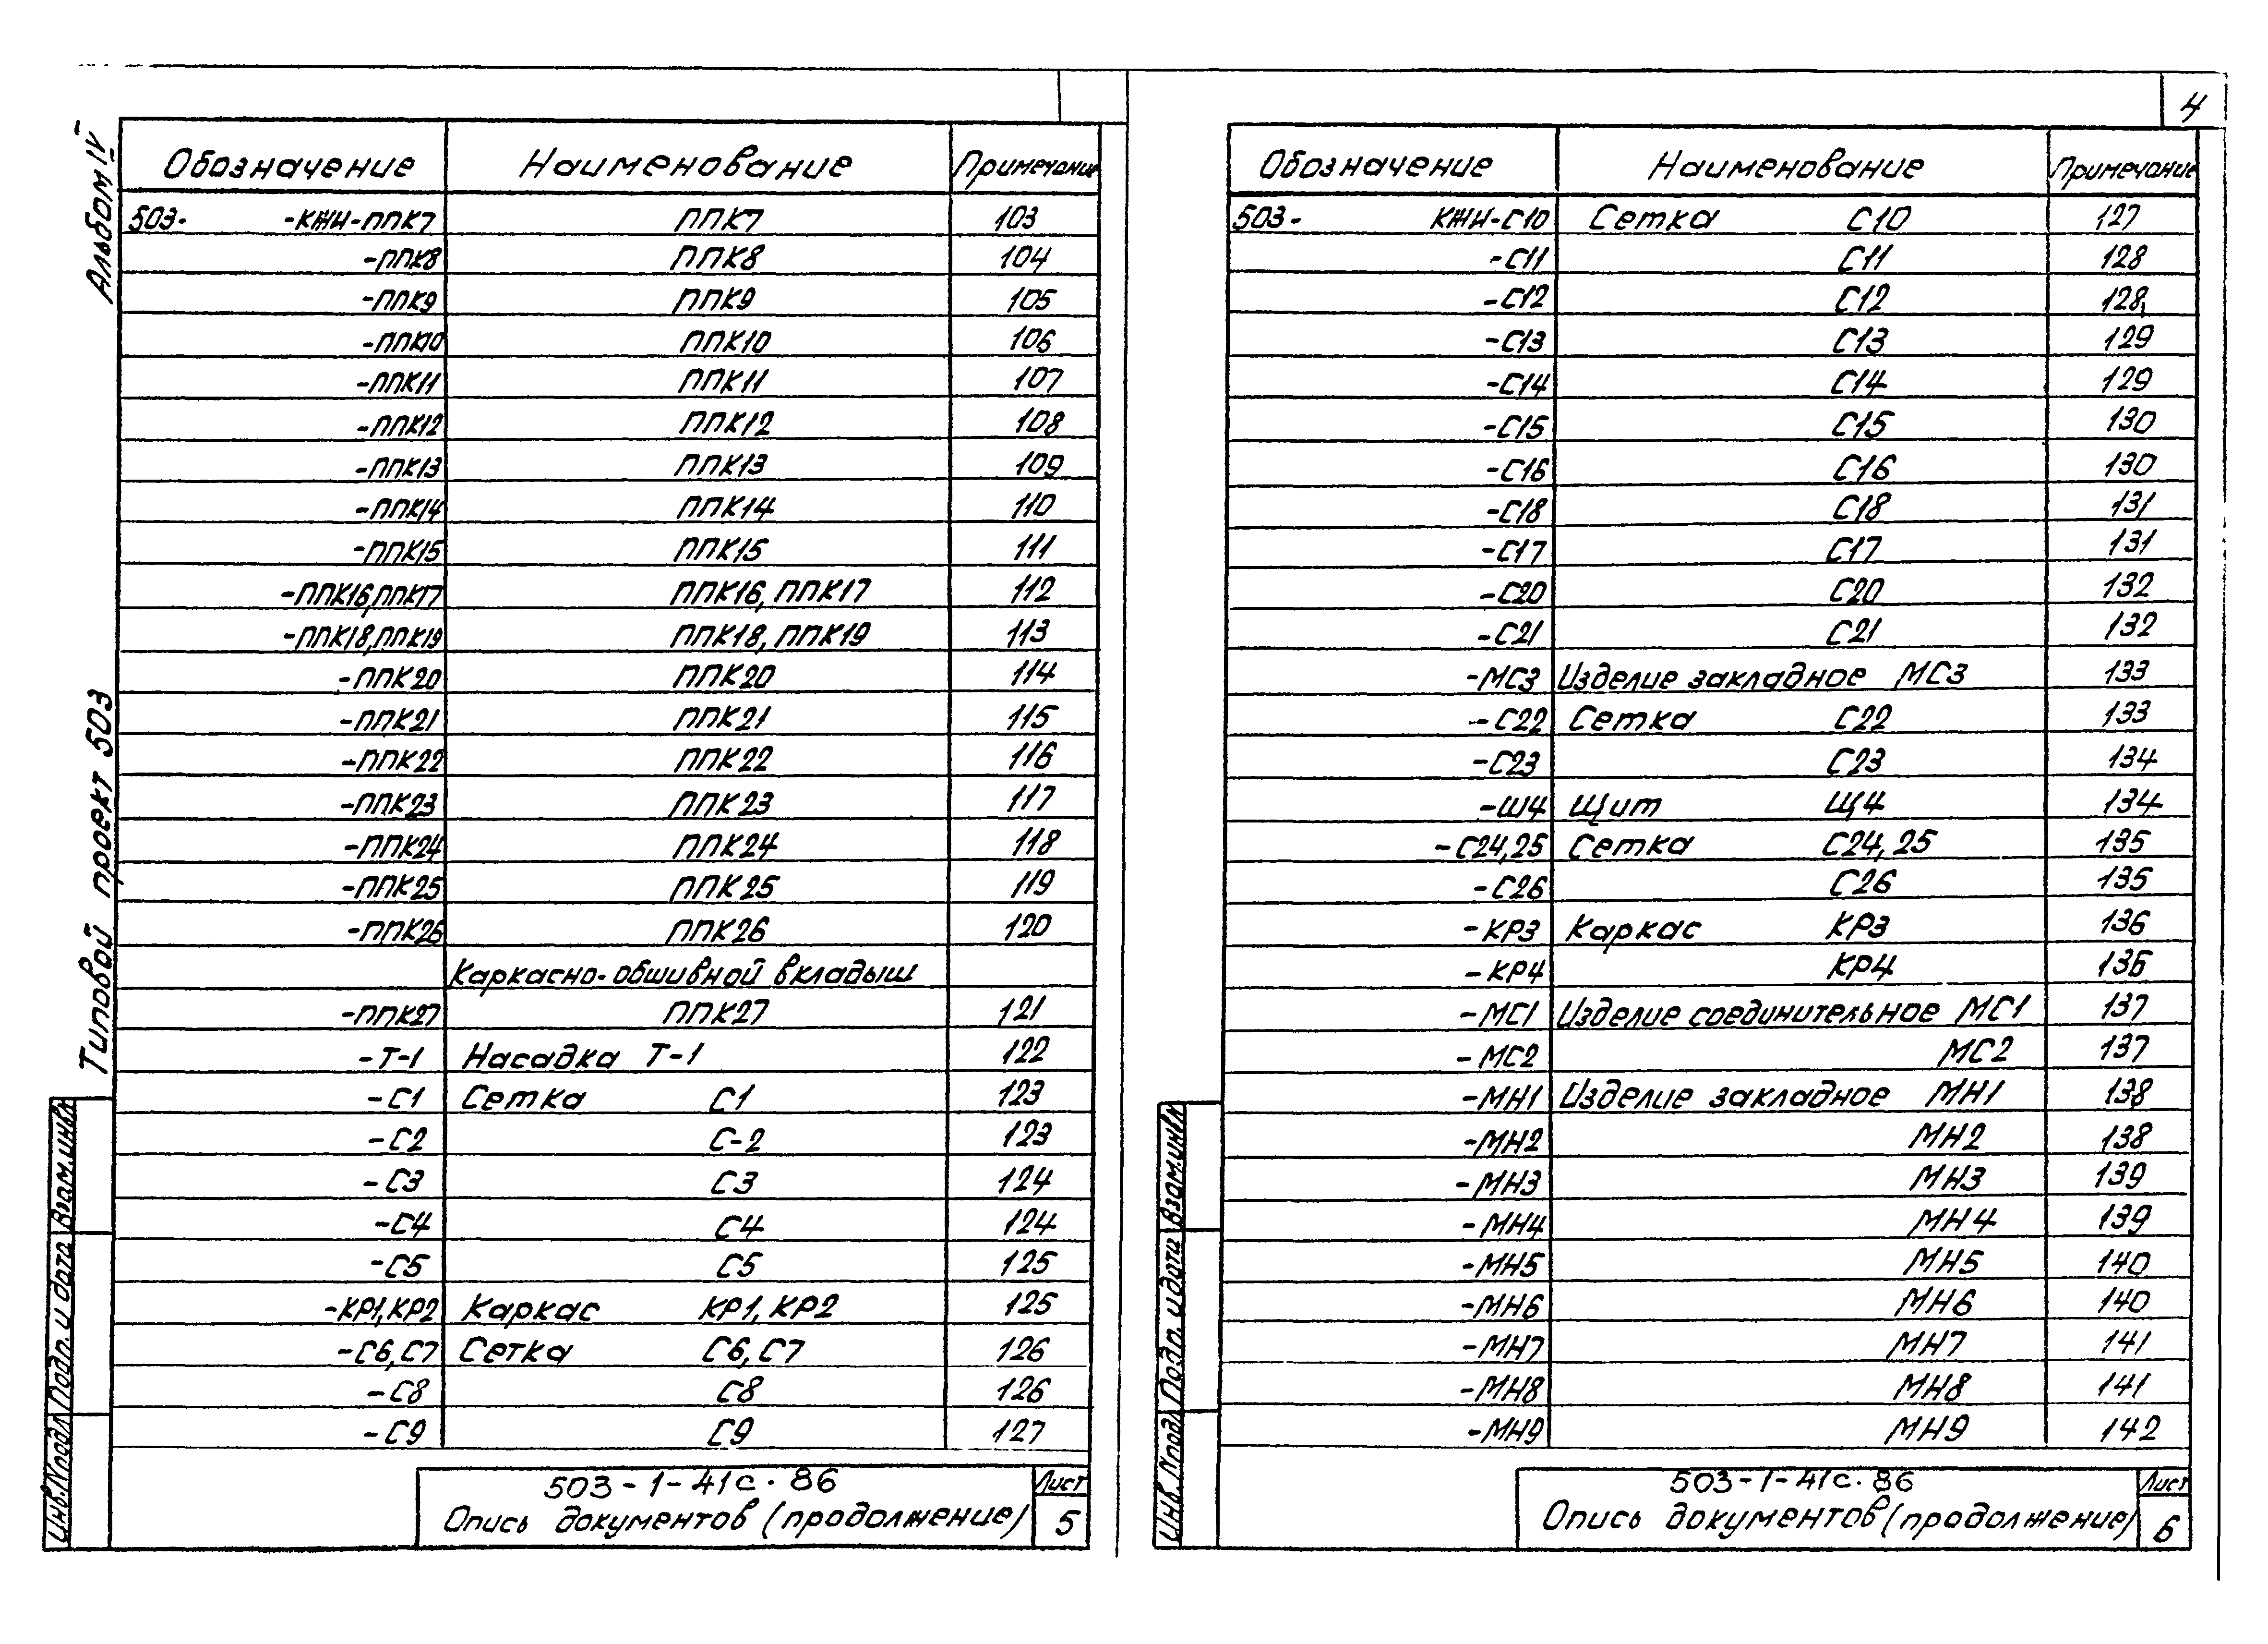 4
Альбом IV
Типовой проект 503
Обозначение Наименование Примечание
503- -КЖИ-ППК7 ППК7 103
-ППК8 ППК8 104
-ППК9 ППК9 105
-ППК10 ППК10 106
-ППК11 ППК11 107
-ППК12 ППК12 108
-ППК13 ППК13 109
-ППК14 ППК14 110
-ППК15 ППК15 111
-ППК16,ППК17 ППК16, ППК17 112
-ППК18,ППК19 ППК18, ППК19 113
-ППК20 ППК20 114
-ППК21 ППК21 115
-ППК22 ППК22 116
-ППК23 ППК23 117
-ППК24 ППК24 118
-ППК25 ППК25 119
-ППК26 ППК26 120
Каркасно-обшивной вкладыш
-ППК27 ППК27 121
-Т-1 Насадка Т-1 122
-С1 Сетка С1 123
-С2 С-2 123
-С3 С3 124
-С4 С4 124
-С5 С5 125
-КР1,КР2 Каркас КР1, КР2 125
-С6,С7 Сетка С6, С7 126
-С8 С8 126
-С9 С9 127
503-1-41с.86
Опись документов (продолжение)
Лист
5
Взам.инв.№
Подп. и дата
Инв.№подл
Обозначение Наименование Примечание
503- КЖИ-С10 Сетка С10 127
-С11 С11 128
-С12 С12 128
-С13 С13 129
-С14 С14 129
-С15 С15 130
-С16 С16 130
-С18 С18 131
-С17 С17 131
-С20 С20 132
-С21 С21 132
-МС3 Изделие закладное МС3 133
-С22 Сетка С22 133
-С23 С23 134
-Ш4 Щит Щ4 134
-С24,25 Сетка С24, 25 135
-С26 С26 135
-КР3 Каркас КР3 136
-КР4 КР4 136
-МС1 Изделие соединительное МС1 137
-МС2 МС2 137
-МН1 Изделие закладное МН1 138
-МН2 МН2 138
-МН3 МН3 139
-МН4 МН4 139
-МН5 МН5 140
-МН6 МН6 140
-МН7 МН7 141
-МН8 МН8 141
-МН9 МН9 142
503-1-41с.86
Опись документов (продолжение)
Лист
6
Взам.инв.№
Подп. и дата
Инв.№подл